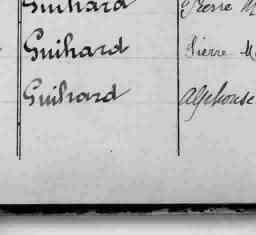 Guihard Pierre M
Guihard Pierre M
Guihard Alphonse